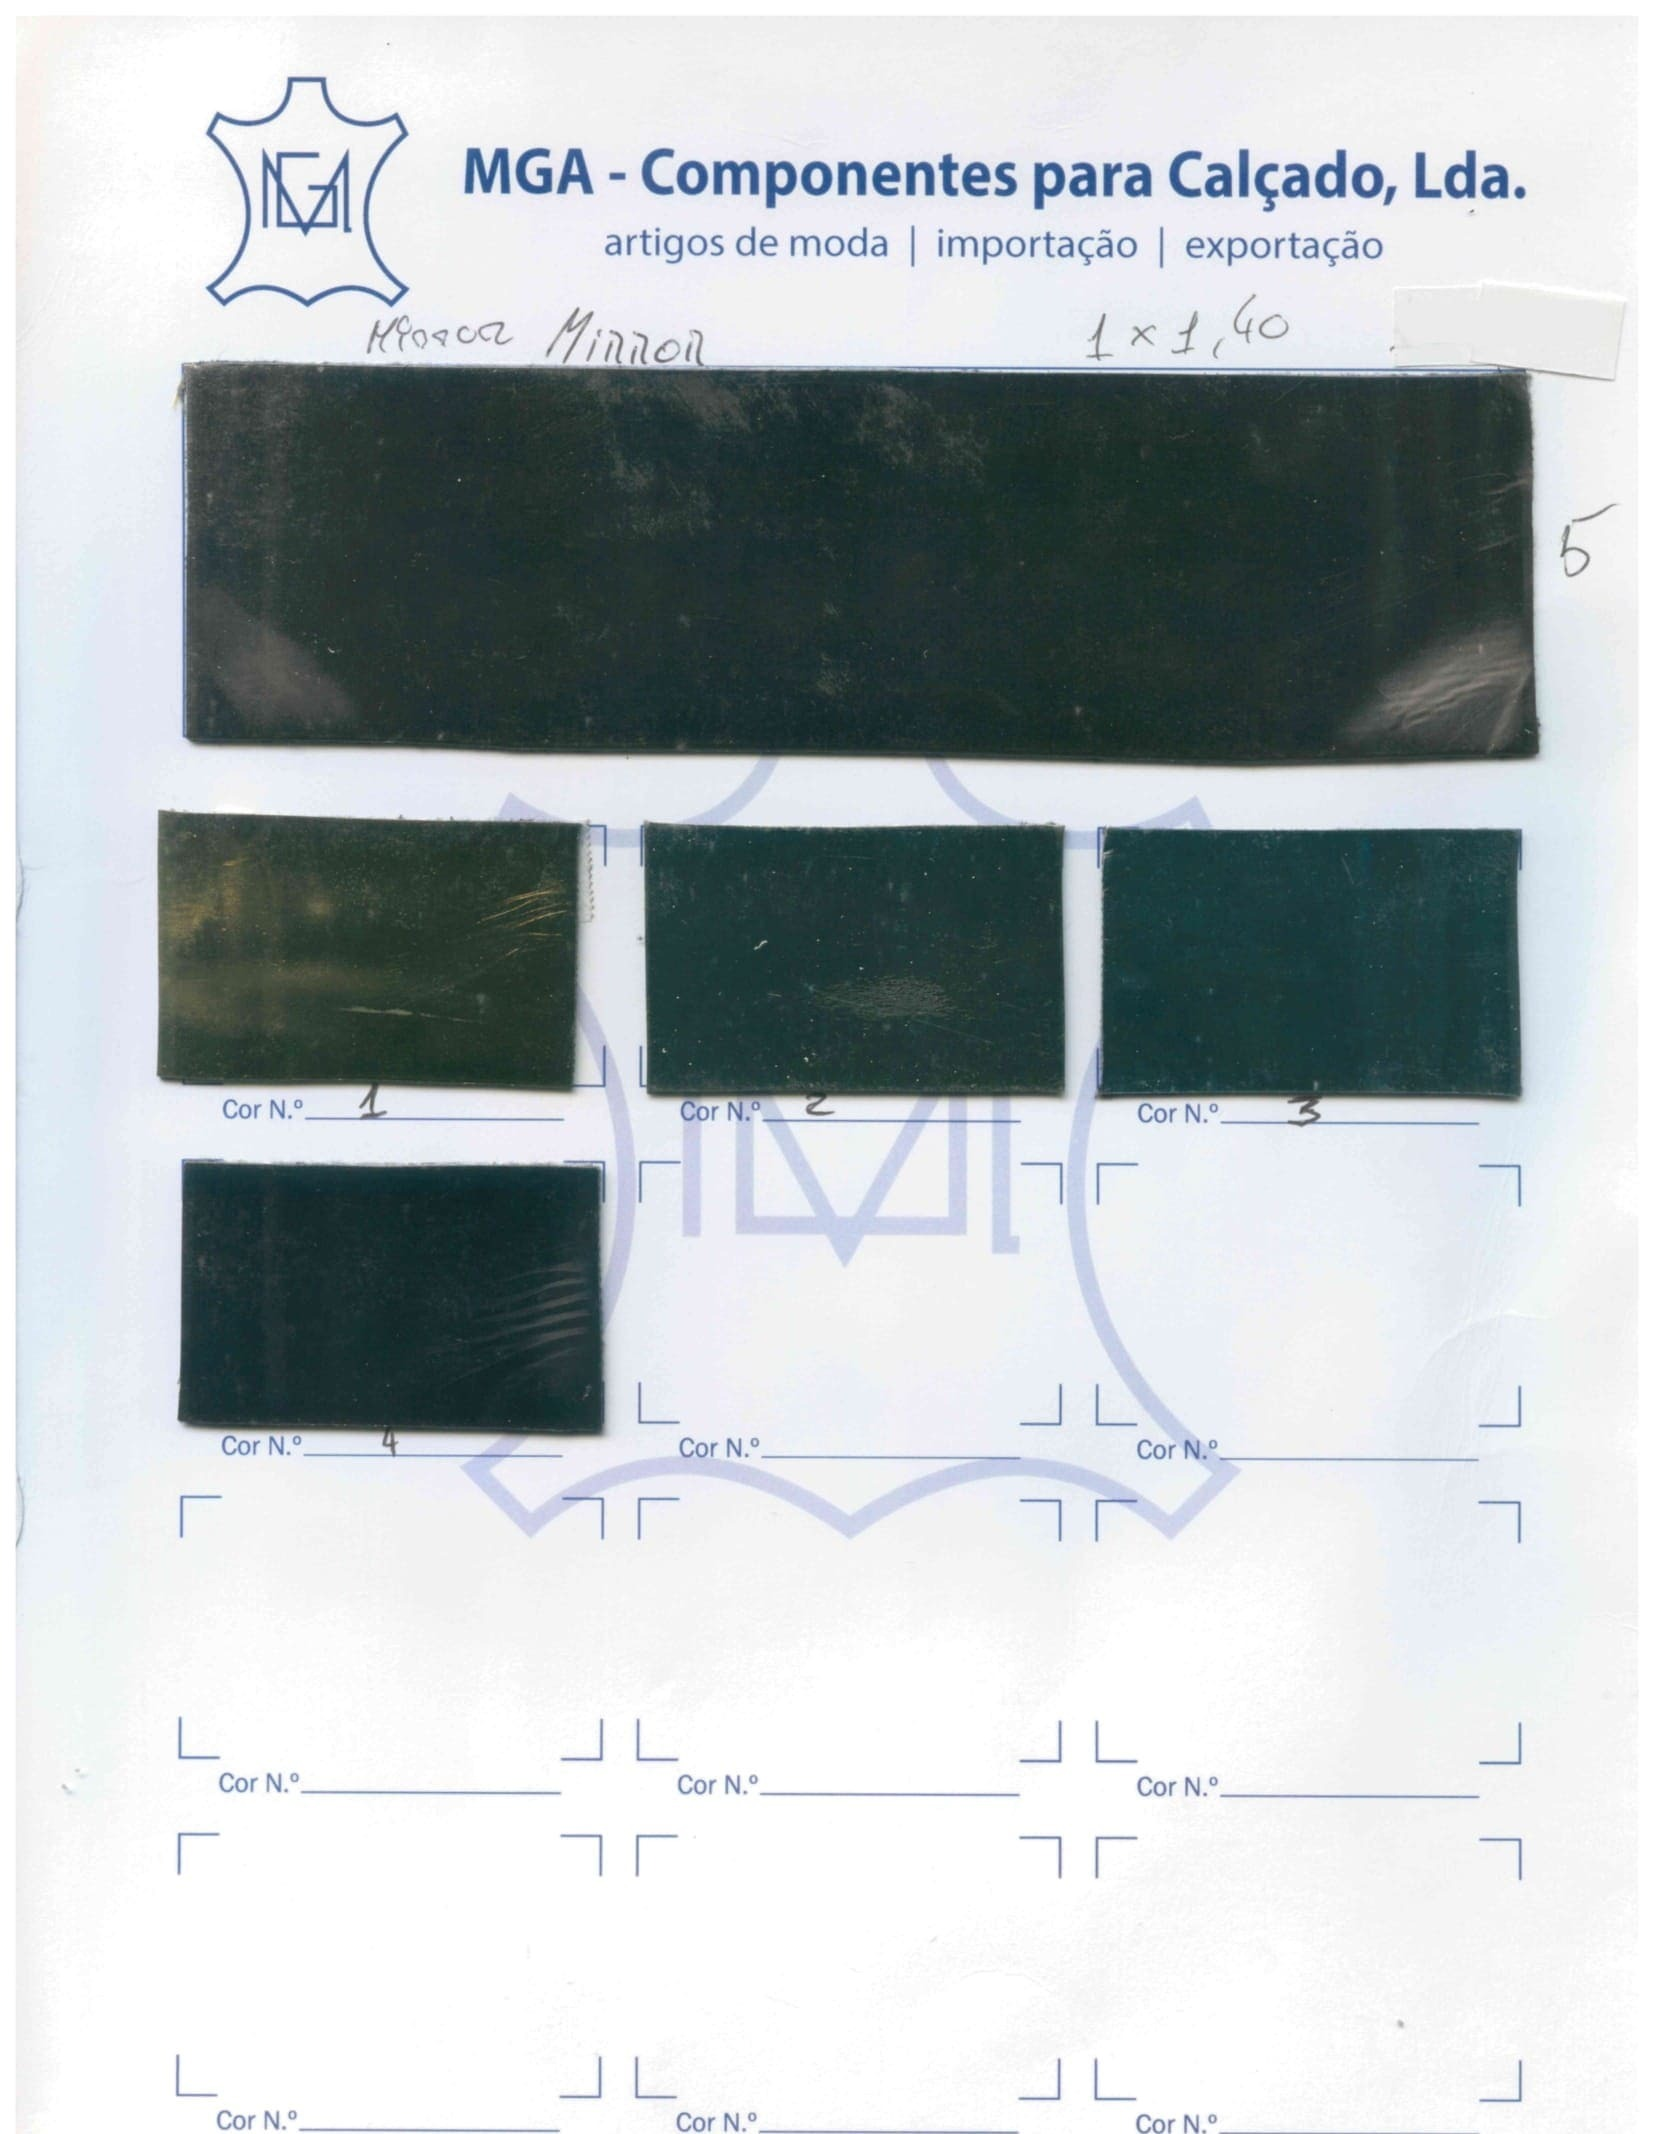 MGA - Componentes para Calçado, Lda.
artigos de moda | importação | exportação
Mirror Mirror 1 x 1,40
5
Cor N.º 1 Cor N.º 2 Cor N.º 3
Cor N.º 4 Cor N.º Cor N.º
Cor N.º Cor N.º Cor N.º
Cor N.º Cor N.º Cor N.º